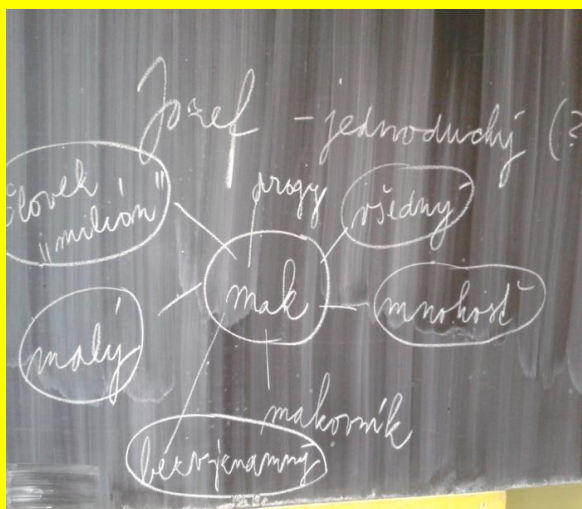 Jozef - jednoduchý (?
človek
„milión"
progy
všedný
mak
malý
mnohosť
makovník
bezvýznamný